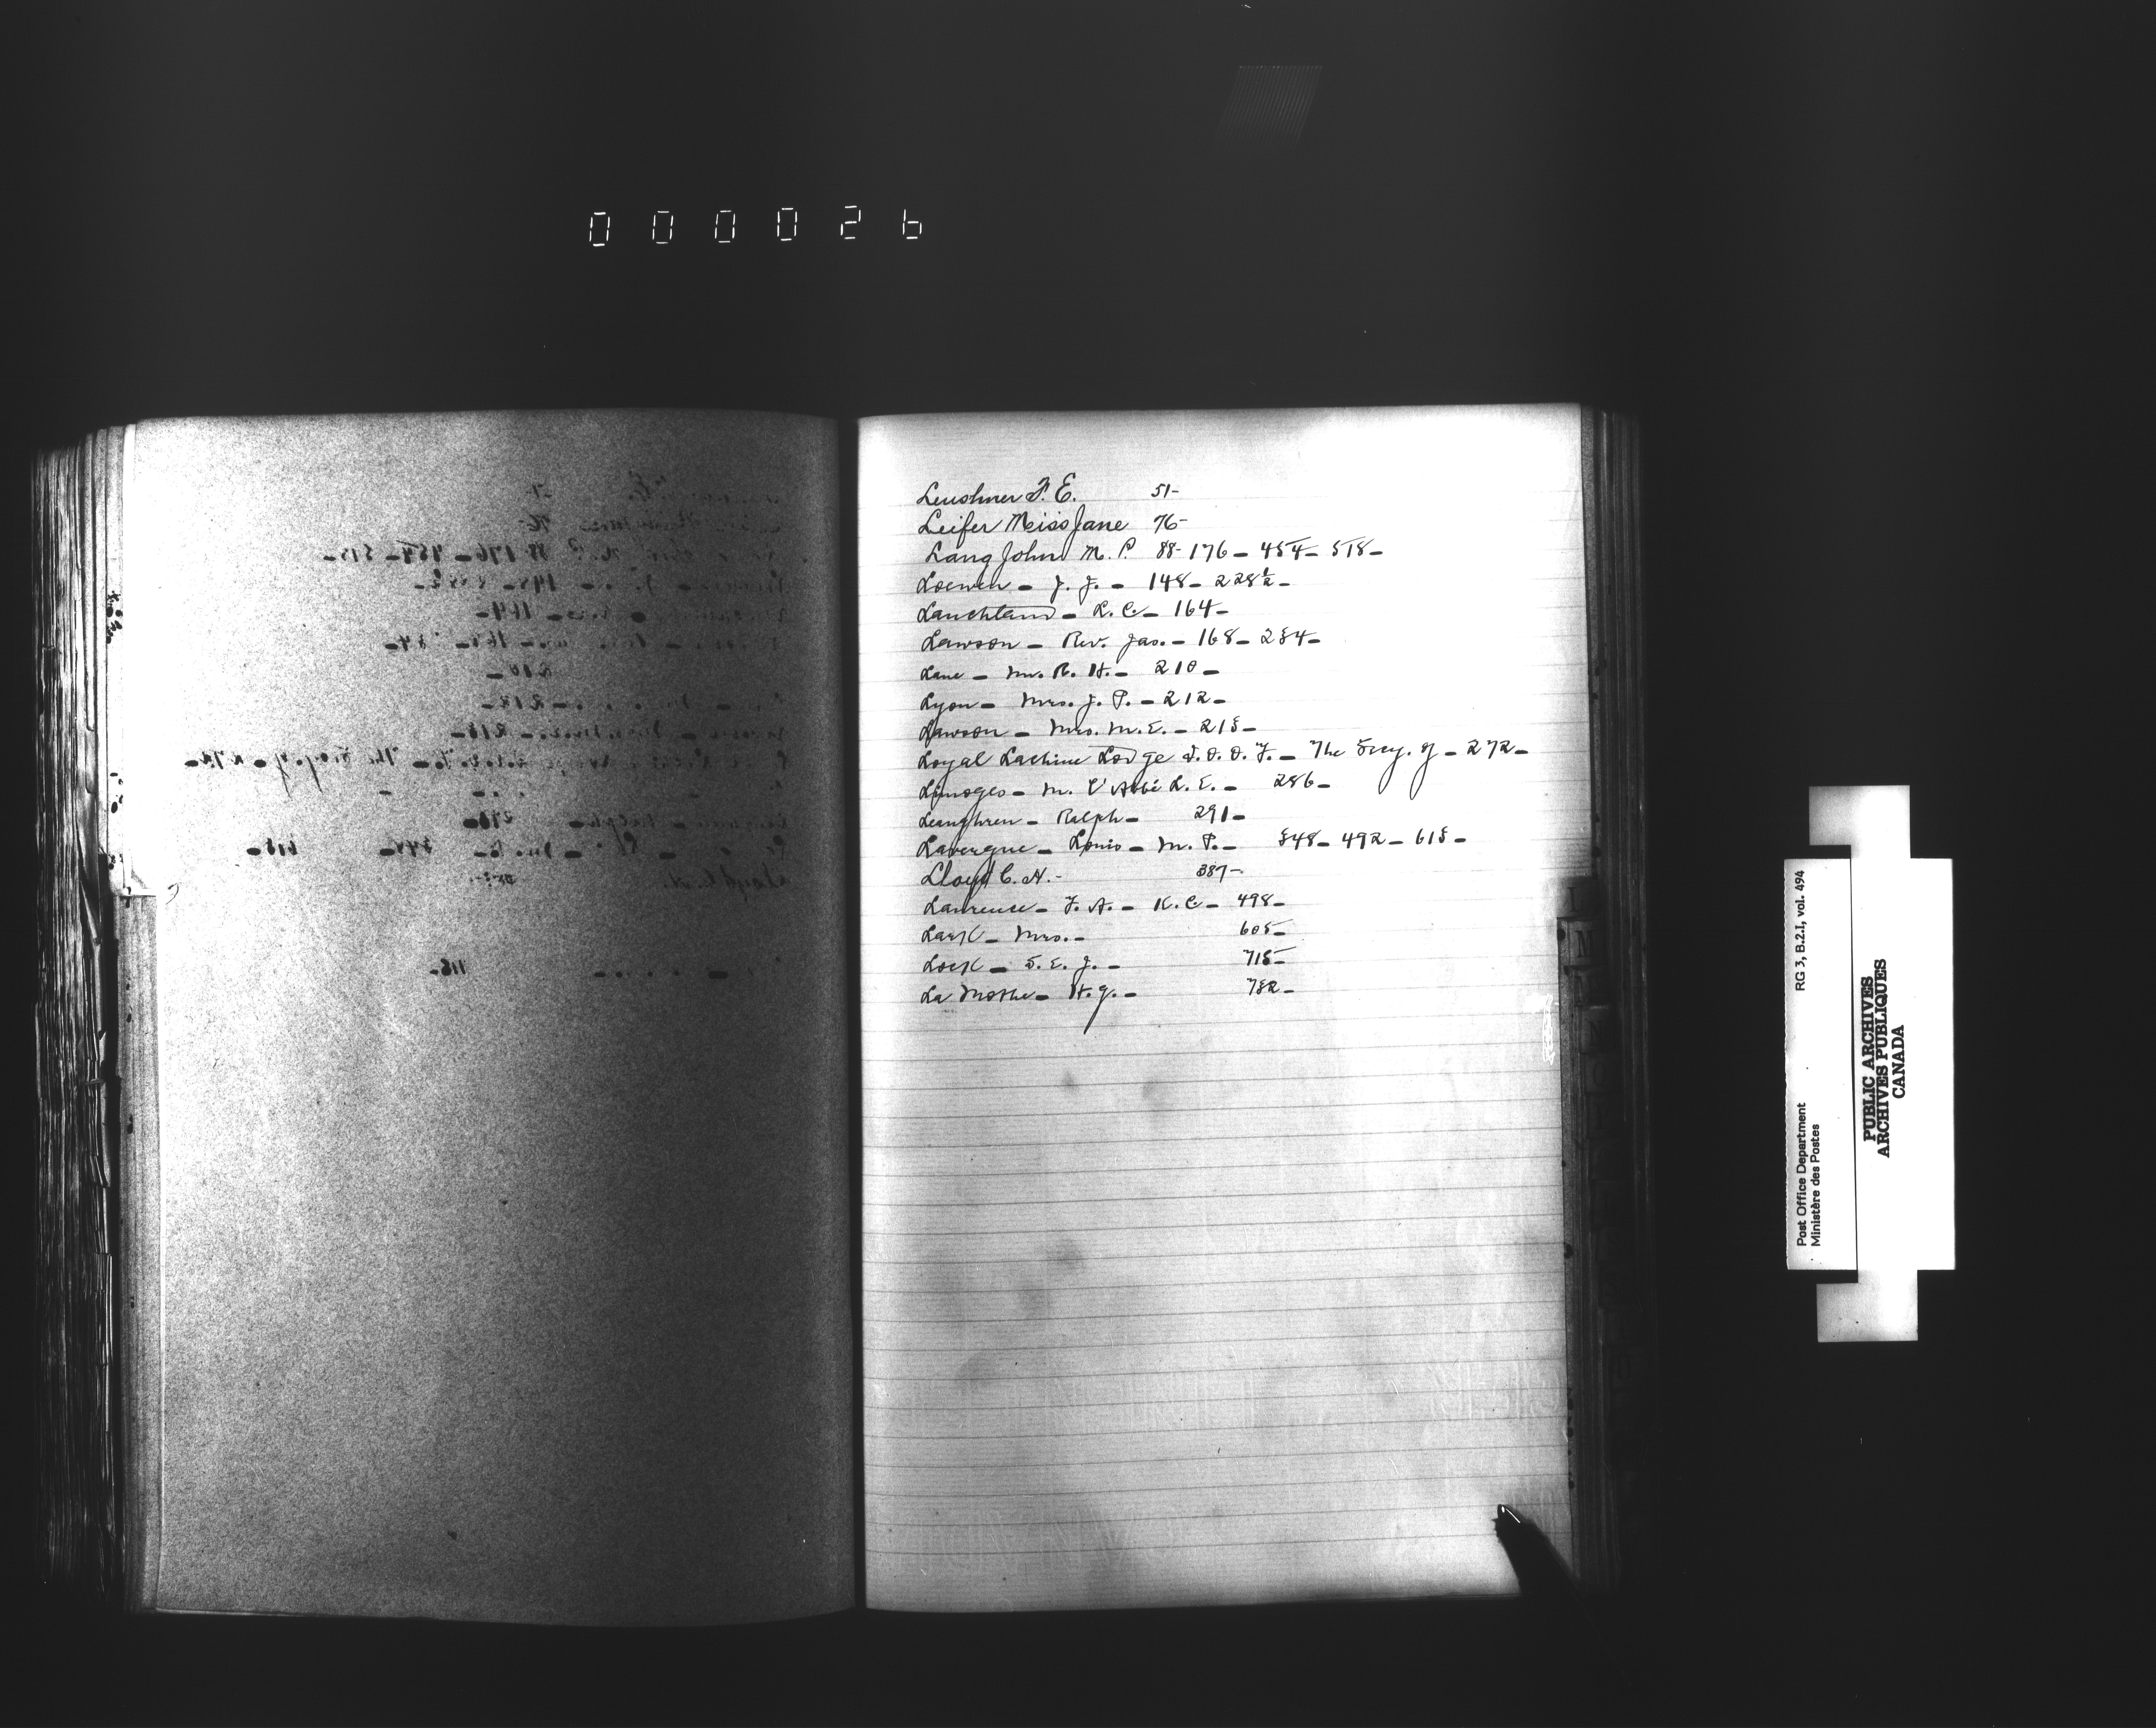 000026
Leushner F. E. 51-
Leifer Miss Jane 76-
Lang John M. P. 88-176-454-518-
Loewen - J. J. - 148-228½-
Lauchland - L. C. - 164-
Lawson - Rev. Jas. - 168-234-
Lane - Mr. R. H. - 210-
Lyon - Mrs. J. P. - 212-
Lawson - Mrs. M. E. - 213-
Loyal Lachine Lodge I. O. O. F. - The Secy. of - 272-
Limoges - M. l'Abbé L. E. - 286-
Leanghren - Ralph - 291-
Lavergne - Louis - M. P. - 348-492-613-
Lloyd C. H. - 387-
Laurence - F. A. - K. C. - 498-
Lark - Mrs. - 605-
Lock - S. E. J. - 715-
La Mothe - H. G. - 732-
L
M
RG 3, B.2.I, vol. 494
Post Office Department
Ministère des Postes
PUBLIC ARCHIVES
ARCHIVES PUBLIQUES
CANADA